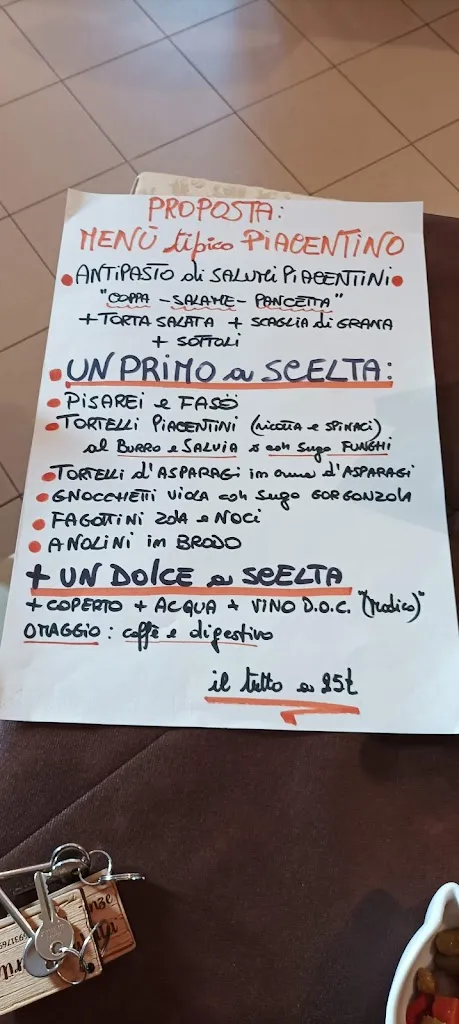 PROPOSTA:
MENÙ tipico PIACENTINO
ANTIPASTO di SALUMI PIACENTINI
"COPPA - SALAME - PANCETTA"
+ TORTA SALATA + SCAGLIA di GRANA
+ SOTTOLI
UN PRIMO a SCELTA:
PISAREI e FASÖ
TORTELLI PIACENTINI (ricotta e SPINACI)
al BURRO e SALVIA o con sugo FUNGHI
TORTELLI d'ASPARAGI in crema d'ASPARAGI
GNOCCHETTI VIOLA con sugo GORGONZOLA
FAGOTTINI ZOLA e NOCI
ANOLINI in BRODO
+ UN DOLCE a SCELTA
+ COPERTO + ACQUA + VINO D.O.C. "(Modico)"
OMAGGIO: caffè e digestivo
il tutto a 25€